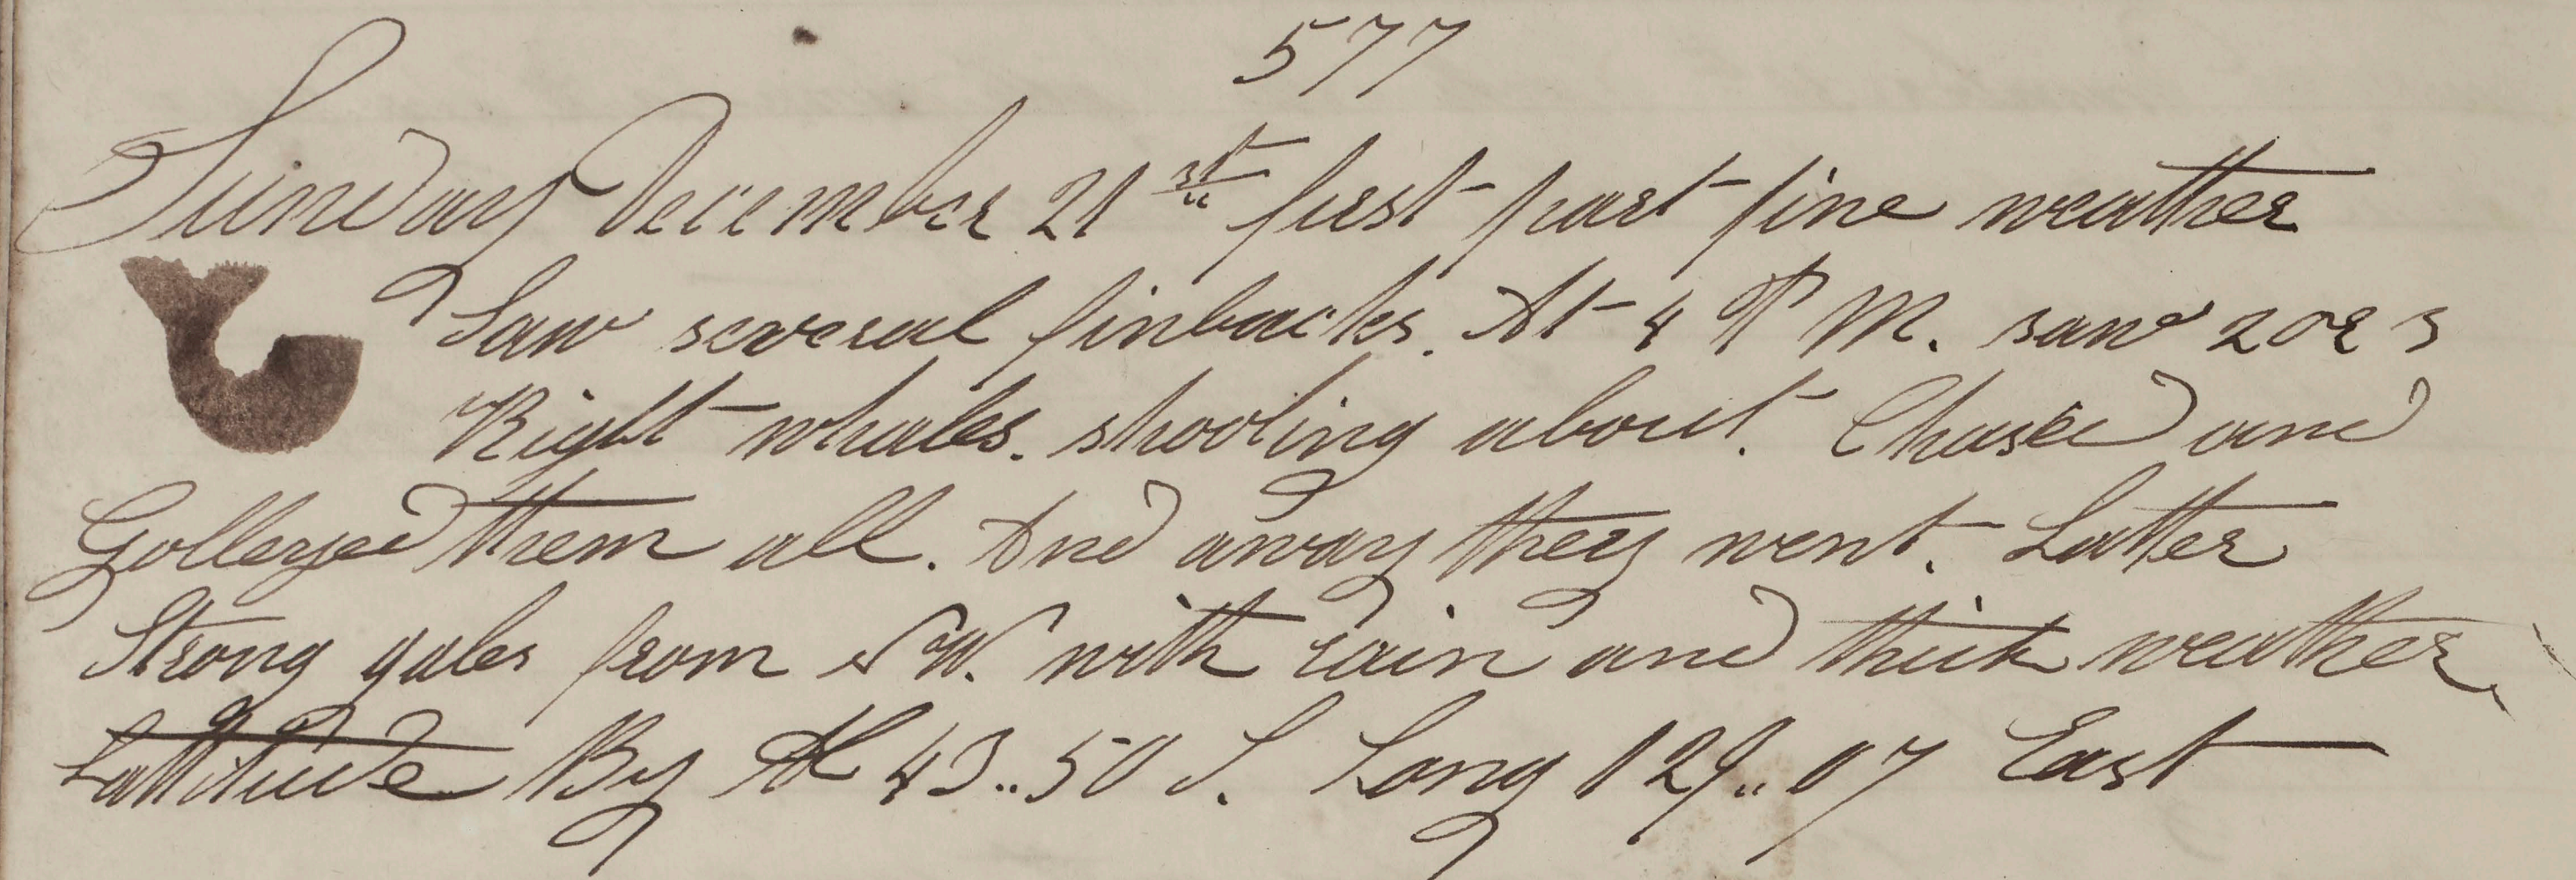 577
Sunday December 21st first part fine weather
Saw several finbacks. At 4 P M. saw 2 or 3
Right whales. shooling about. Chased and
Golleyed them all. And away they went. Latter
Strong gales from NW. with rain and thick weather
Lattitude By At 43..50 S. Long 129..07 East